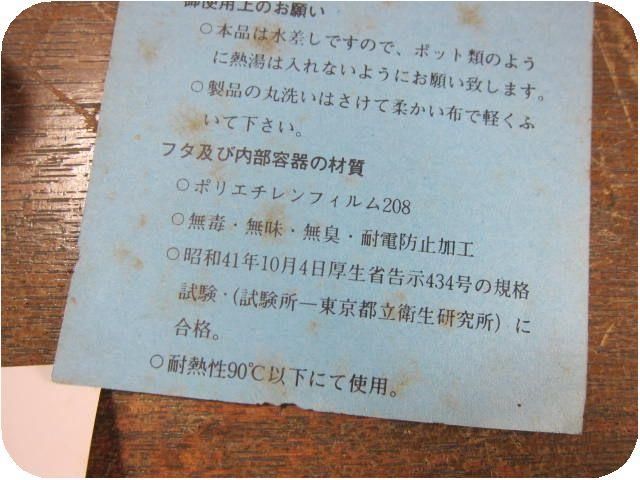 御使用上のお願い
○本品は水差しですので、ポット類のよう
に熱湯は入れないようにお願い致します。
○製品の丸洗いはさけて柔かい布で軽くふ
いて下さい。
フタ及び内部容器の材質
○ポリエチレンフィルム208
○無毒・無味・無臭・耐電防止加工
○昭和41年10月4日厚生省告示434号の規格
試験・(試験所―東京都立衛生研究所)に
合格。
○耐熱性90℃以下にて使用。